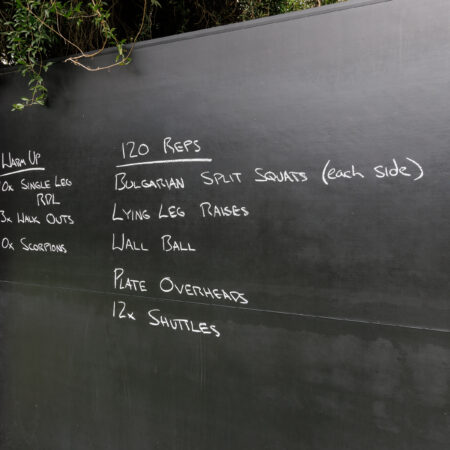 Warm Up
0x Single Leg
RDL
3x Walk Outs
0x Scorpions
120 Reps
Bulgarian Split Squats (each side)
Lying Leg Raises
Wall Ball
Plate Overheads
12x Shuttles